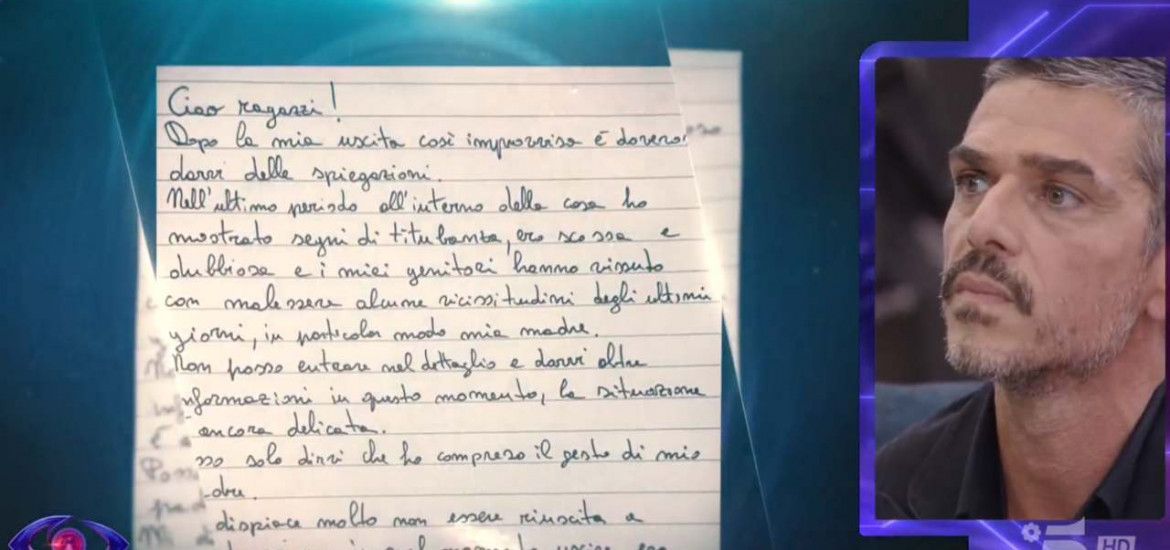 Ciao ragazzi!
Dopo la mia uscita così improvvisa è
darvi delle spiegazioni.
Nell'ultimo periodo all'interno della casa ho
mostrato segni di titubanza, ero scossa e
dubbiosa e i miei genitori hanno vissuto
con malessere alcune vicissitudini degli ultimi
giorni, in particolar modo mia madre.
Non posso entrare nel dettaglio e darvi altre
nformazioni in questo momento, la situazione
ancora delicata.
sso solo dirvi che ho compreso il gesto di mio
dre.
dispiace molto non essere riuscita a
5
HD